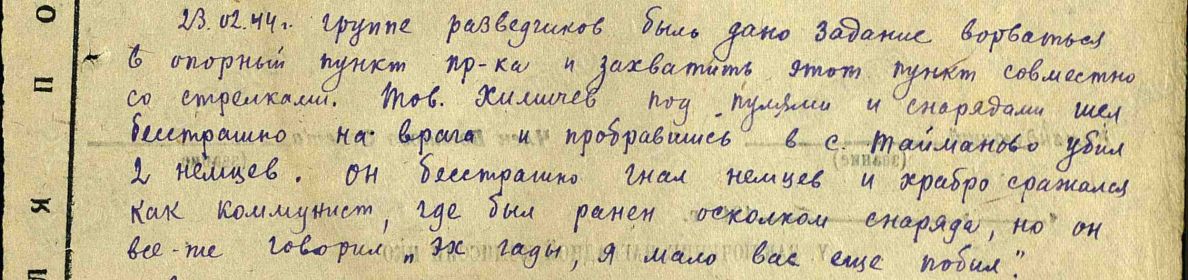 23.02.44г. группе разведчиков было дано задание ворваться
в опорный пункт пр-ка и захватить этот пункт совместно
со стрелками. Тов. Химичев под пулями и снарядами шел
бесстрашно на врага и пробравшись в с. Тайманово убил
2 немцев. он бесстрашно гнал немцев и храбро сражался
как коммунист, где был ранен осколком снаряда, но он
все-же говорил „эх гады, я мало вас еще побил."